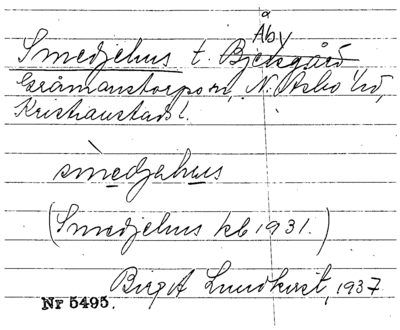 Åby
Smedjehus t. Bjersgård
Gråmanstorps sn, N. Åsbo hd,
Kristianstads l.
smedjahus
(Smedjehus kb 1931.)
Birgit Lundkvist, 1937.
Nr 5495.